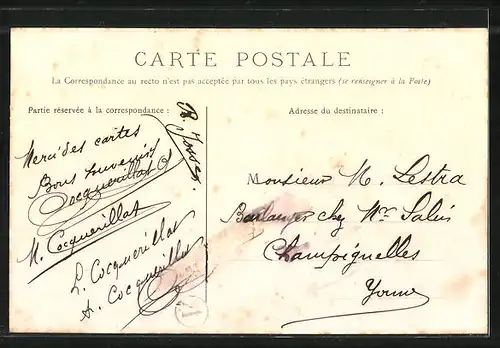 CARTE POSTALE
La Correspondance au recto n'est pas acceptée par tous les pays étrangers (se renseigner à la Poste)
Partie réservée à la correspondance :
Merci des cartes
Bons souvenirs
Cocquerillat
M. Cocquerillat
L. Cocquerillat
A. Cocquerillat
Adresse du destinataire :
Monsieur M. Lestra
Boulanger chez Mr Salin
Champignelles
Yonne